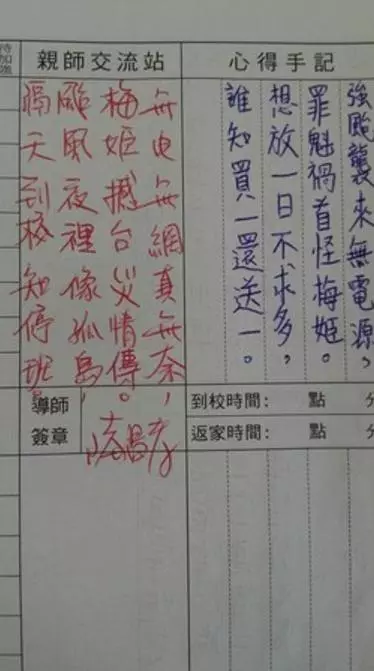 待加強
親師交流站
心得手記
強颱襲來無電源，
罪魁禍首怪梅姬。
想放一日不求多，
誰知買一還送一。
無电無網真無奈，
梅姬撼台災情傳。
颱風夜裡像孤島
隔天到校知停班
導師
簽章
到校時間： 點 分
返家時間： 點 分